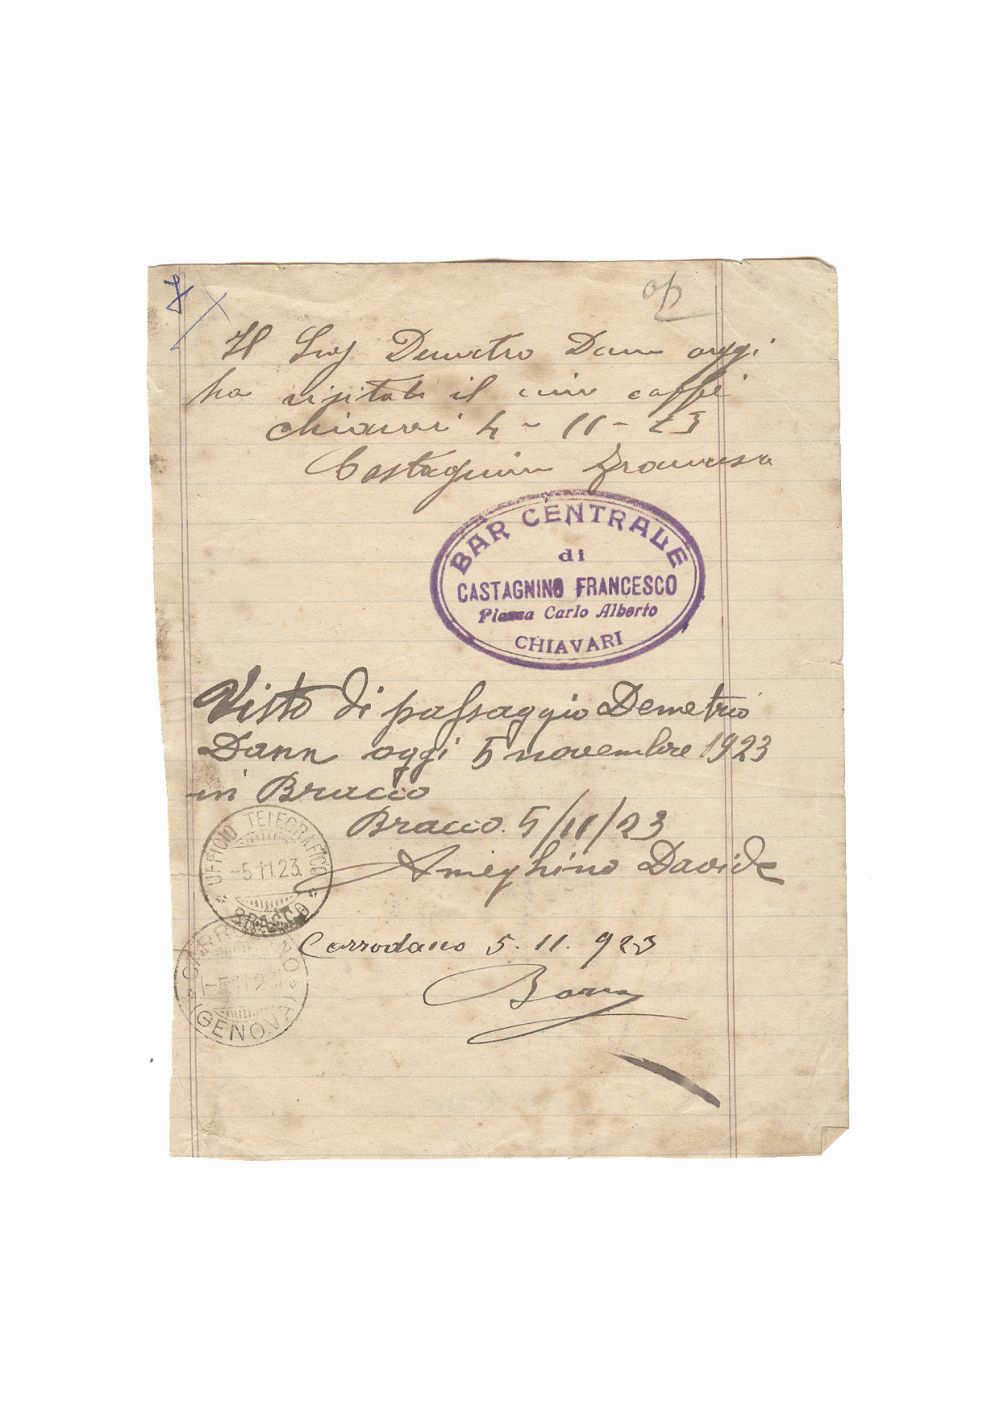 Il Sig Demetro Dann oggi
ha visitato il mio caffe
Chiavari 4 - 11 - 23
Castagnino Francesco
BAR CENTRALE
di
CASTAGNINO FRANCESCO
Piazza Carlo Alberto
CHIAVARI
Visto di passaggio Demetrio
Dann oggi 5 novembre 1923
in Bracco
Bracco 5/11/23
Ameghino Davide
UFFICIO TELEGRAFICO
-5.11.23
BRACCO
Carrodano 5. 11. 923
CARRODANO
(GENOVA)